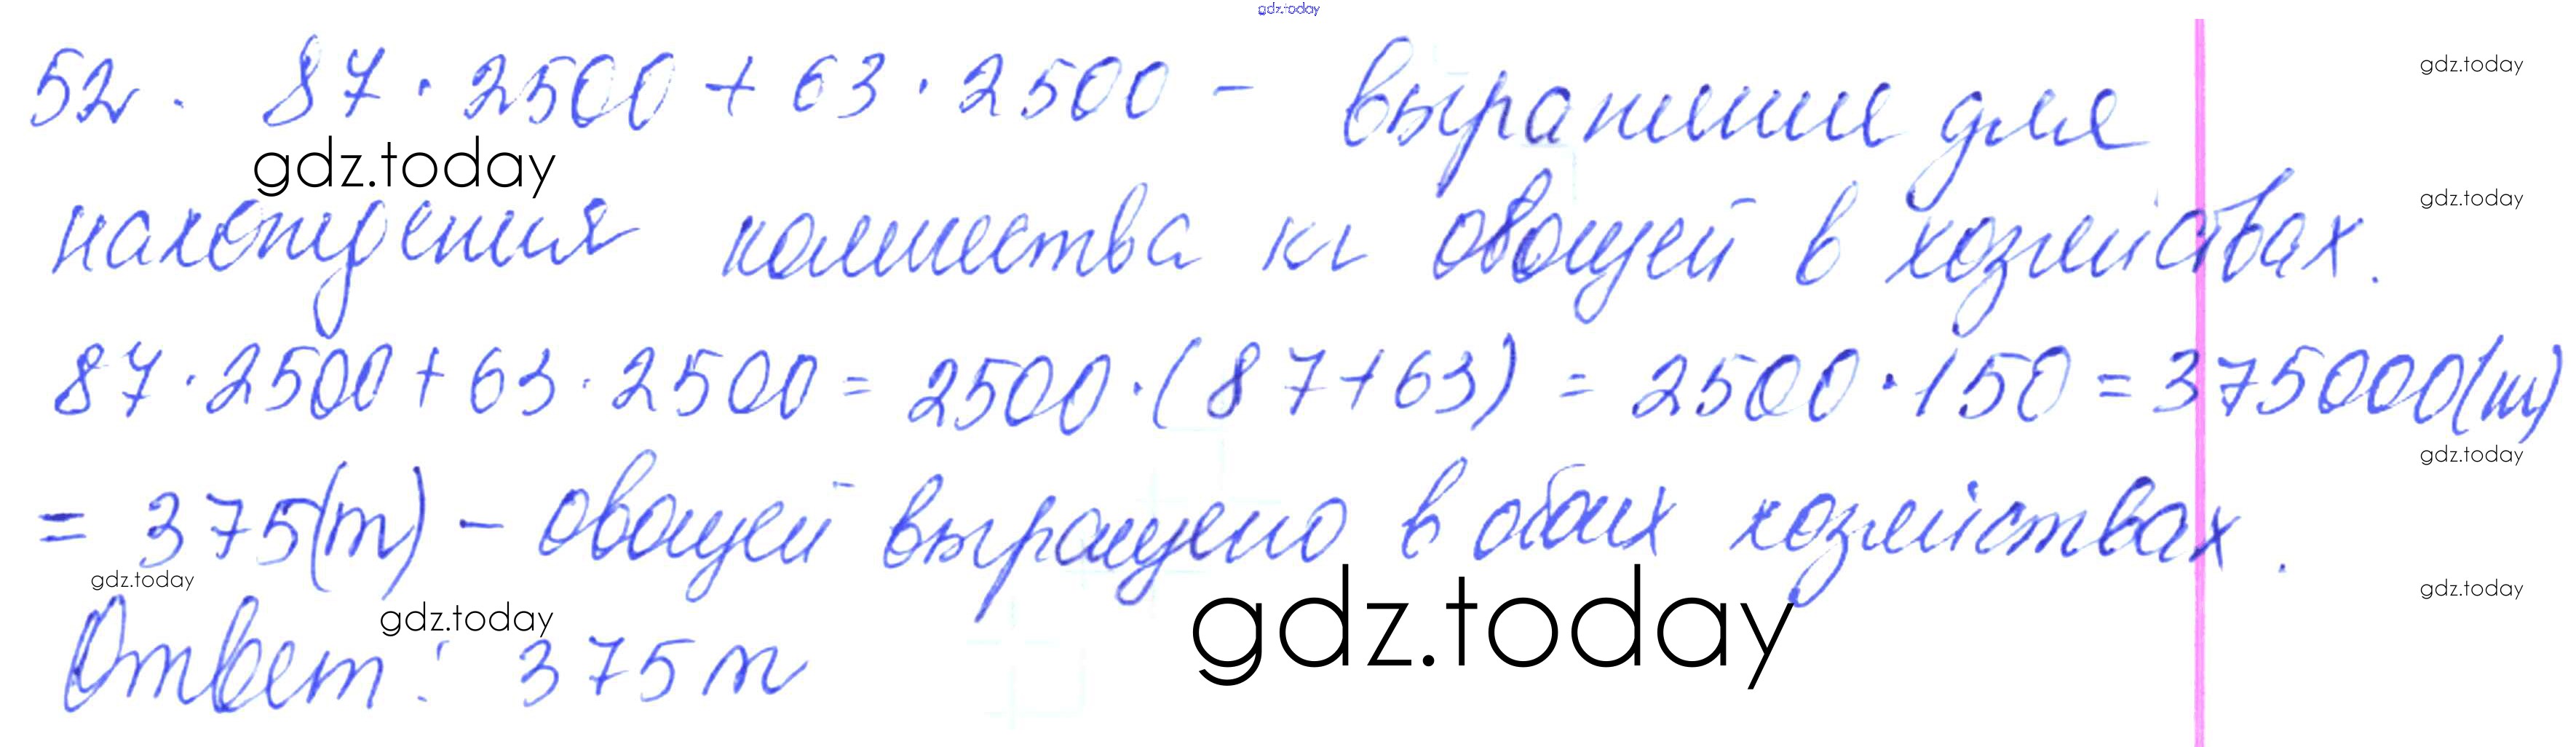 gdz.today
52. 87 · 2500 + 63 · 2500 - выражение для
gdz.today
gdz.today
нахождения количества кг овощей в хозяйствах.
gdz.today
87 · 2500 + 63 · 2500 = 2500 · (87+63) = 2500 · 150 = 375000(кг)
gdz.today
= 375(т) - овощей выращено в обоих хозяйствах.
gdz.today
gdz.today
gdz.today
gdz.today
Ответ: 375 т